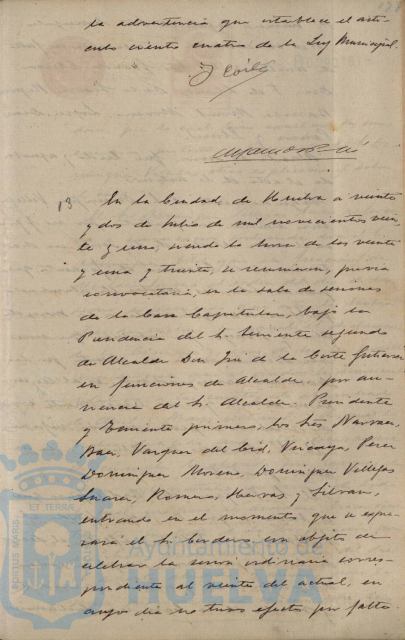 la advertencia que establece el artí-
culo ciento cuatro de la Ley Municipal.
En la Ciudad de Huelva a veinte
y dos de Julio de mil novecientos vein-
te y uno, siendo la hora de las veinte
y una y treinta, se reunieron, previa
convocatoria, en la sala de sesiones
de la Casa Capitular, bajo la
Presidencia del Sr. Teniente segundo
de Alcalde Don José de la Corte Gutierrez
en funciones de Alcalde por au-
sencia del Sr. Alcalde Presidente
y Teniente primero, los Sres Narvaez
Baez, Vazquez del Cid, Vizcaya, Perez
Dominguez Moreno, Dominguez Villegas
Suarez, Romero, Hervas y Silvan,
entrando en el momento que se expe-
sará el Sr. Cordero con objeto de
celebrar la sesión ordinaria corres-
pondiente al veinte del actual, en
cuyo día no tuvo efecto por falta
ET TERRAE
PORTUS MARIS
Ayuntamiento de
HUELVA